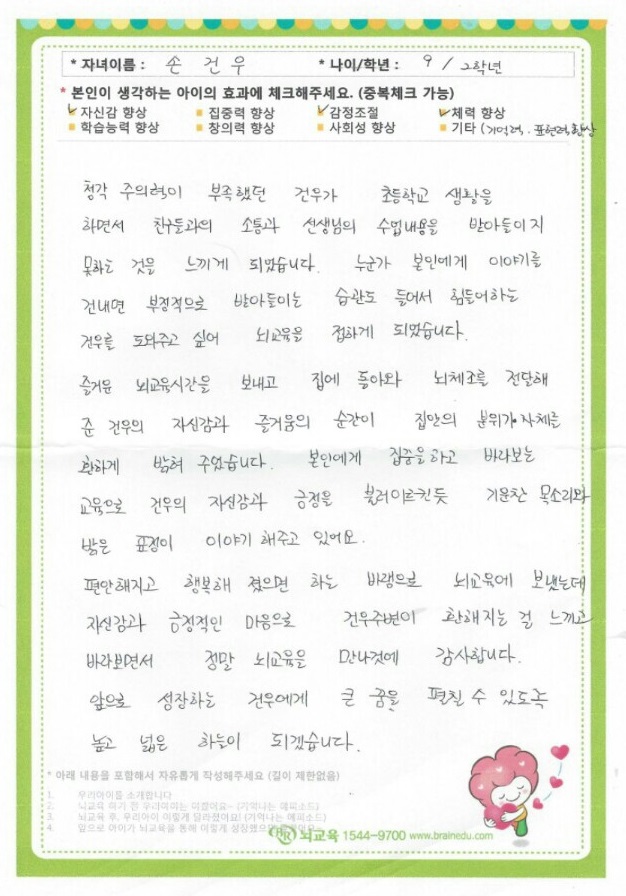 * 자녀이름 : 손 건 우 * 나이/학년 : 9 / 2학년
* 본인이 생각하는 아이의 효과에 체크해주세요. (중복체크 가능)
자신감 향상 집중력 향상 감정조절 체력 향상
학습능력 향상 창의력 향상 사회성 향상 기타 (기억력, 표현력,향상
청각 주의력이 부족했던 건우가 초등학교 생활을
하면서 친구들과의 소통과 선생님의 수업내용을 받아들이지
못하는 것을 느끼게 되었습니다. 누군가 본인에게 이야기를
건내면 부정적으로 받아들이는 습관도 들어서 힘들어하는
건우를 도와주고 싶어 뇌교육을 접하게 되었습니다.
즐거운 뇌교육시간을 보내고 집에 돌아와 뇌체조를 전달해
준 건우의 자신감과 즐거움의 순간이 집안의 분위기 자체를
환하게 밝혀 주었습니다. 본인에게 집중을하고 바라보는
교육으로 건우의 자신감과 긍정을 불러이르킨듯 기운찬 목소리와
밝은 표정이 이야기 해주고 있어요.
편안해지고 행복해 졌으면 하는 바램으로 뇌교육에 보냈는데
자신감과 긍정적인 마음으로 건우주변이 환해지는 걸 느끼고
바라보면서 정말 뇌교육을 만나것에 감사합니다.
앞으로 성장하는 건우에게 큰 꿈을 펼친 수 있도록
높고 넓은 하늘이 되겠습니다.
* 아래 내용을 포함해서 자유롭게 작성해주세요 (길이 제한없음)
1. 우리아이를 소개합니다
2. 뇌교육 하기 전 우리아이는 이랬어요~ (기억나는 에피소드)
3. 뇌교육 후, 우리아이 이렇게 달라졌어요! (기억나는 에피소드)
4. 앞으로 아이가 뇌교육을 통해 이렇게 성장했으면
BR 뇌교육 1544-9700 www.brainedu.com